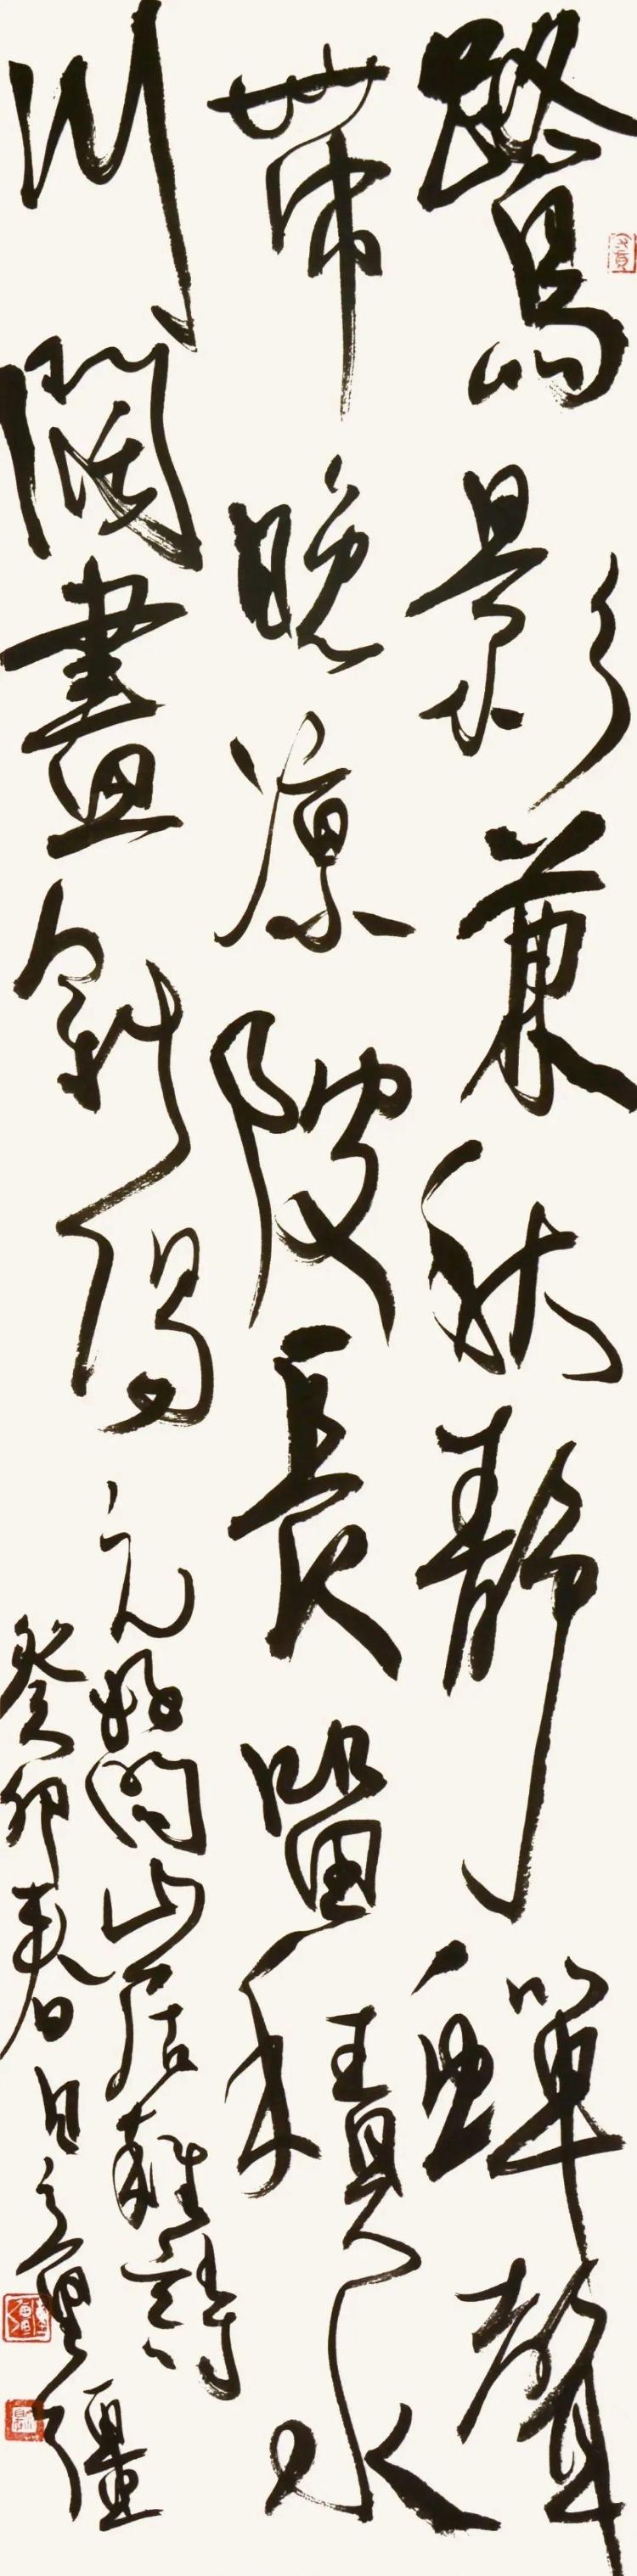 鷺影兼秋靜蟬聲
帶晚凉陂長留積水
川闊盡斜陽
元好問山居雜詩
癸卯春日之